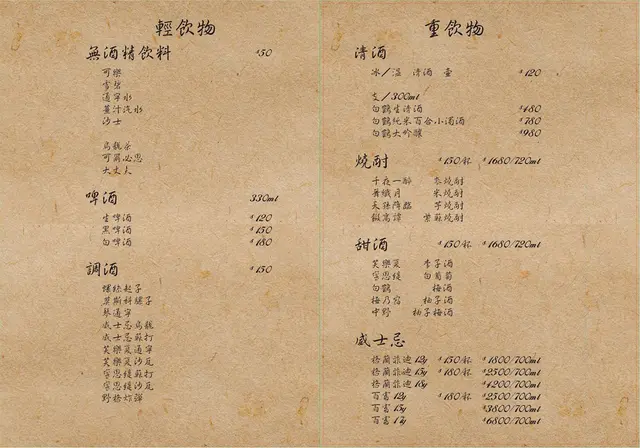 輕飲物
無酒精飲料 $50
可樂
雪碧
通寧水
薑汁汽水
沙士
烏龍茶
可爾必思
大丈夫
啤酒 330ml
生啤酒 $120
黑啤酒 $150
白啤酒 $180
調酒 $150
螺絲起子
莫斯科騾子
琴通寧
威士忌烏龍
威士忌蘇打
芙樂夏通寧
芙樂夏沙瓦
字思綾蘇打
字思綾沙瓦
野格炸彈
重飲物
清酒
冰/溫 清酒 壺 $120
支/300ml
白鶴生清酒 $480
白鶴純米百合小濁酒 $780
白鶴大吟釀 $980
燒酎 $150/杯 $1680/720ml
千夜一醉 麥燒酎
舞織月 米燒酎
天孫降臨 芋燒酎
鍛高譚 紫蘇燒酎
甜酒 $150/杯 $1680/720ml
芙樂夏 李子酒
字思綾 白葡萄
白鶴 梅酒
梅乃宿 柚子酒
中野 柚子梅酒
威士忌
格蘭菲迪 12y $150/杯 $1800/700ml
格蘭菲迪 15y $180/杯 $2500/700ml
格蘭菲迪 18y $4200/700ml
百富 12y $180/杯 $2500/700ml
百富 15y $3800/700ml
百富 17y $6800/700ml